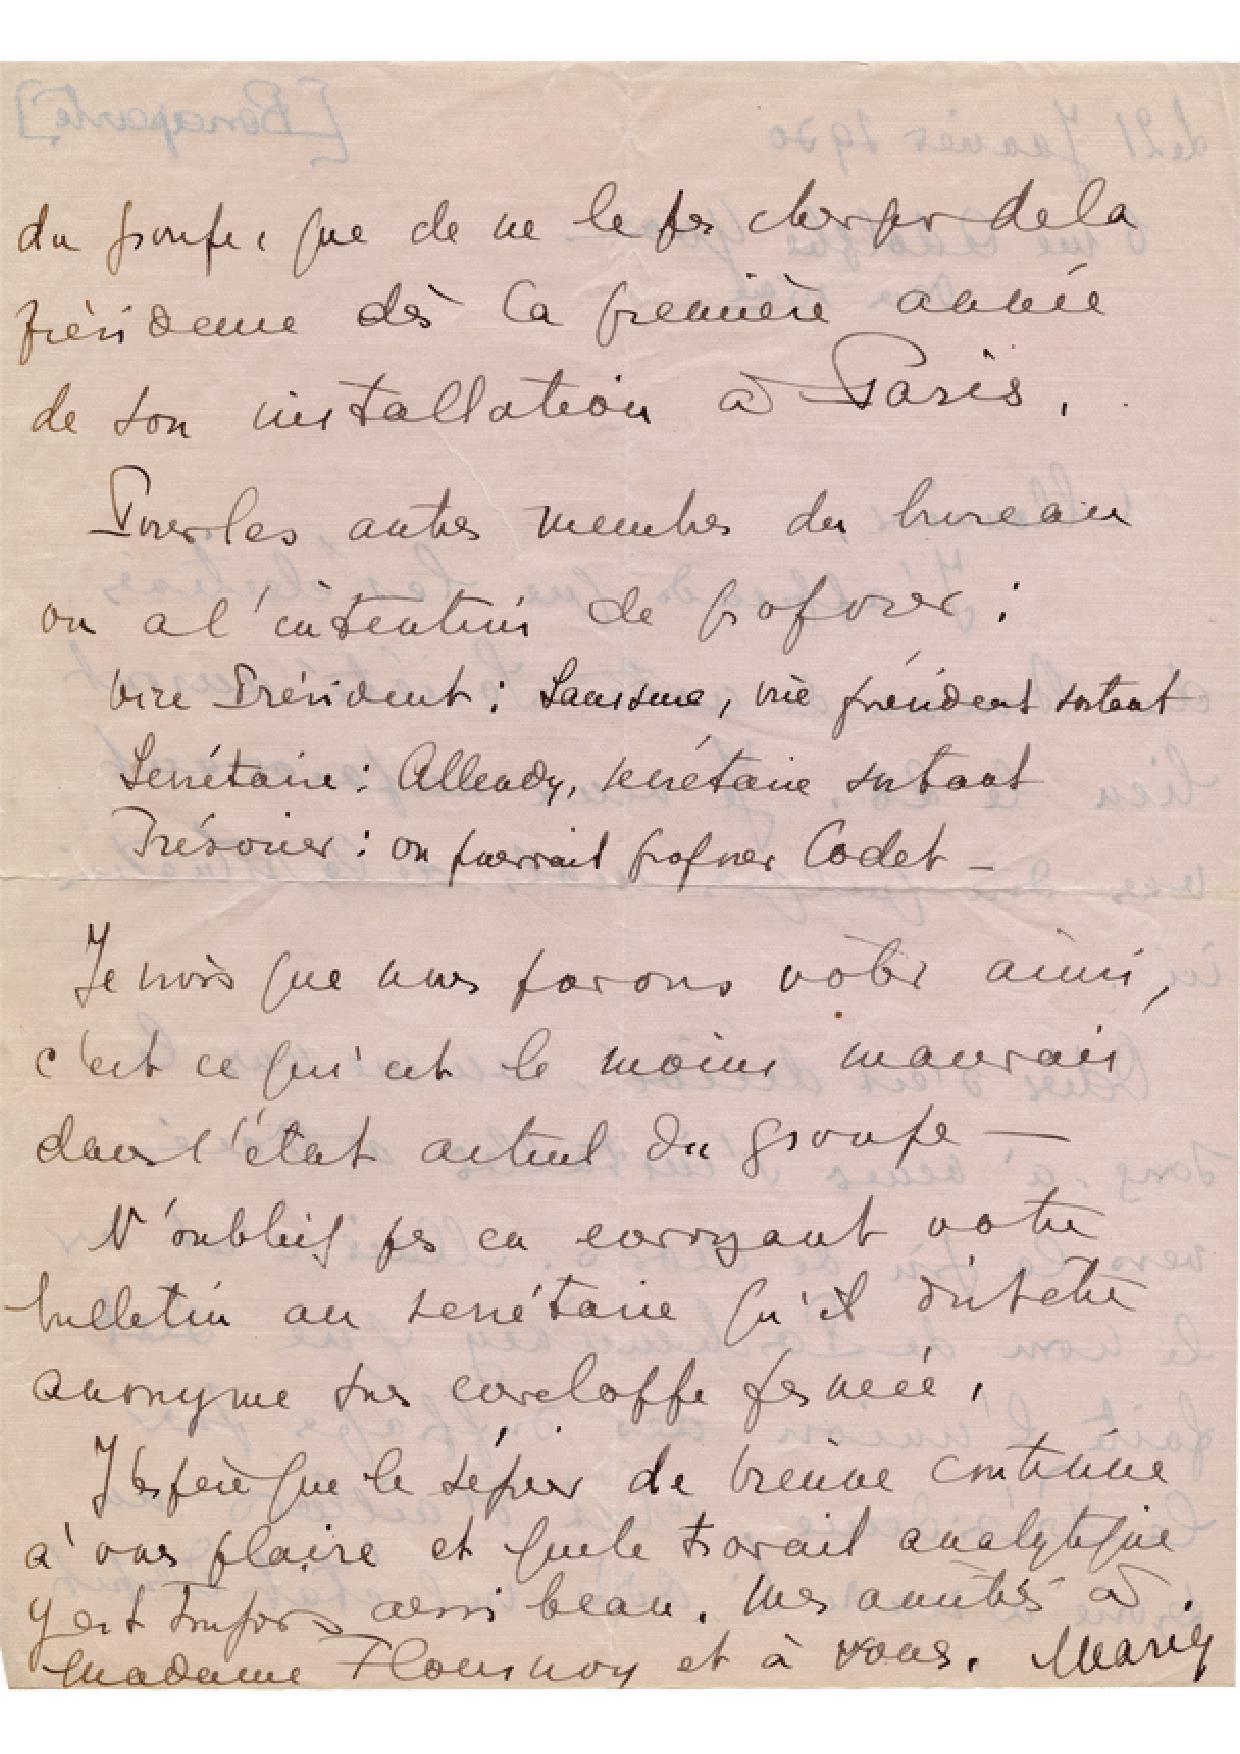 du groupe, que de ne le pas charger de la
présidence dès la première année
de son installation à Paris.
Pour les autres membres du bureau
on a l'intention de proposer :
Vice Président : Laussme, vice président sortant
Secrétaire : Allendy, secrétaire sortant
Trésorier : on pourrait proposer Codet —
Je crois que nous ferons voter ainsi,
c'est ce qui est le moins mauvais
dans l'état actuel du groupe —
N'oubliez pas en envoyant votre
bulletin au secrétaire qu'il doit être
anonyme sous enveloppe fermée.
J'espère que le séjour de Vienne continue
à vous plaire et que le travail analytique
y est toujours aussi beau. Mes amitiés à
Madame Flournoy et à vous. Marie